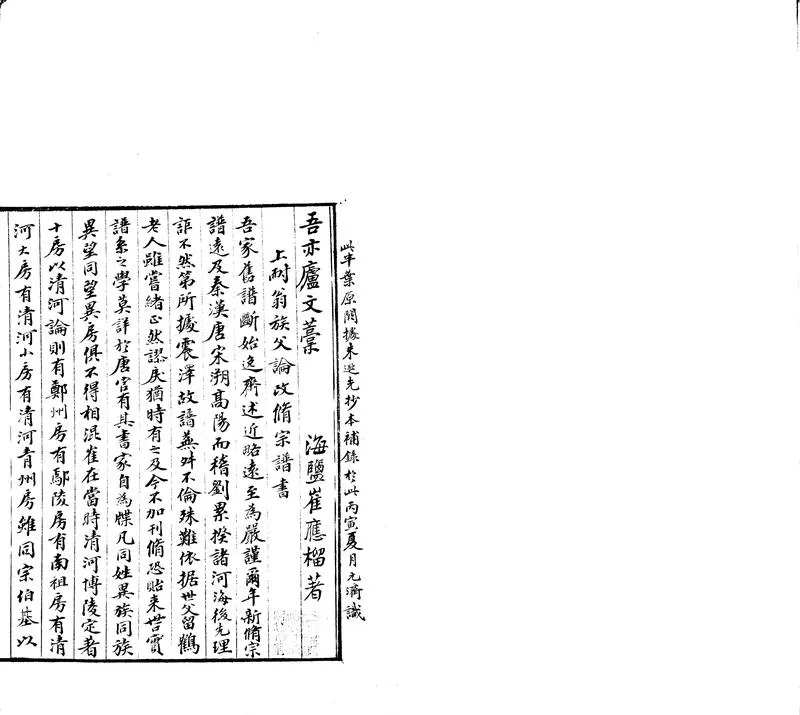 此半葉原闕據朱逖先抄本補錄於此丙寅夏月元濟識
吾亦廬文藁　海鹽崔應榴著
上耐翁族父論改脩宗譜書
吾家舊譜斷始逸齋述近略遠至為嚴謹爾年新脩宗
譜遠及秦漢唐宋朔高陽而稽劉累揆諸河海後先理
詎不然第所據震澤故譜蕪舛不倫殊難依据世父留鶴
老人雖嘗緒正然謬戾猶時有之及今不加刊脩恐貽來世實
譜系之學莫詳於唐官有其書家自為牒凡同姓異族同族
異望同望異房俱不得相混崔在當時清河博陵定著
十房以清河論則有鄭州房有鄢陵房有南祖房有清
河大房有清河小房有清河青州房雖同宗伯基以